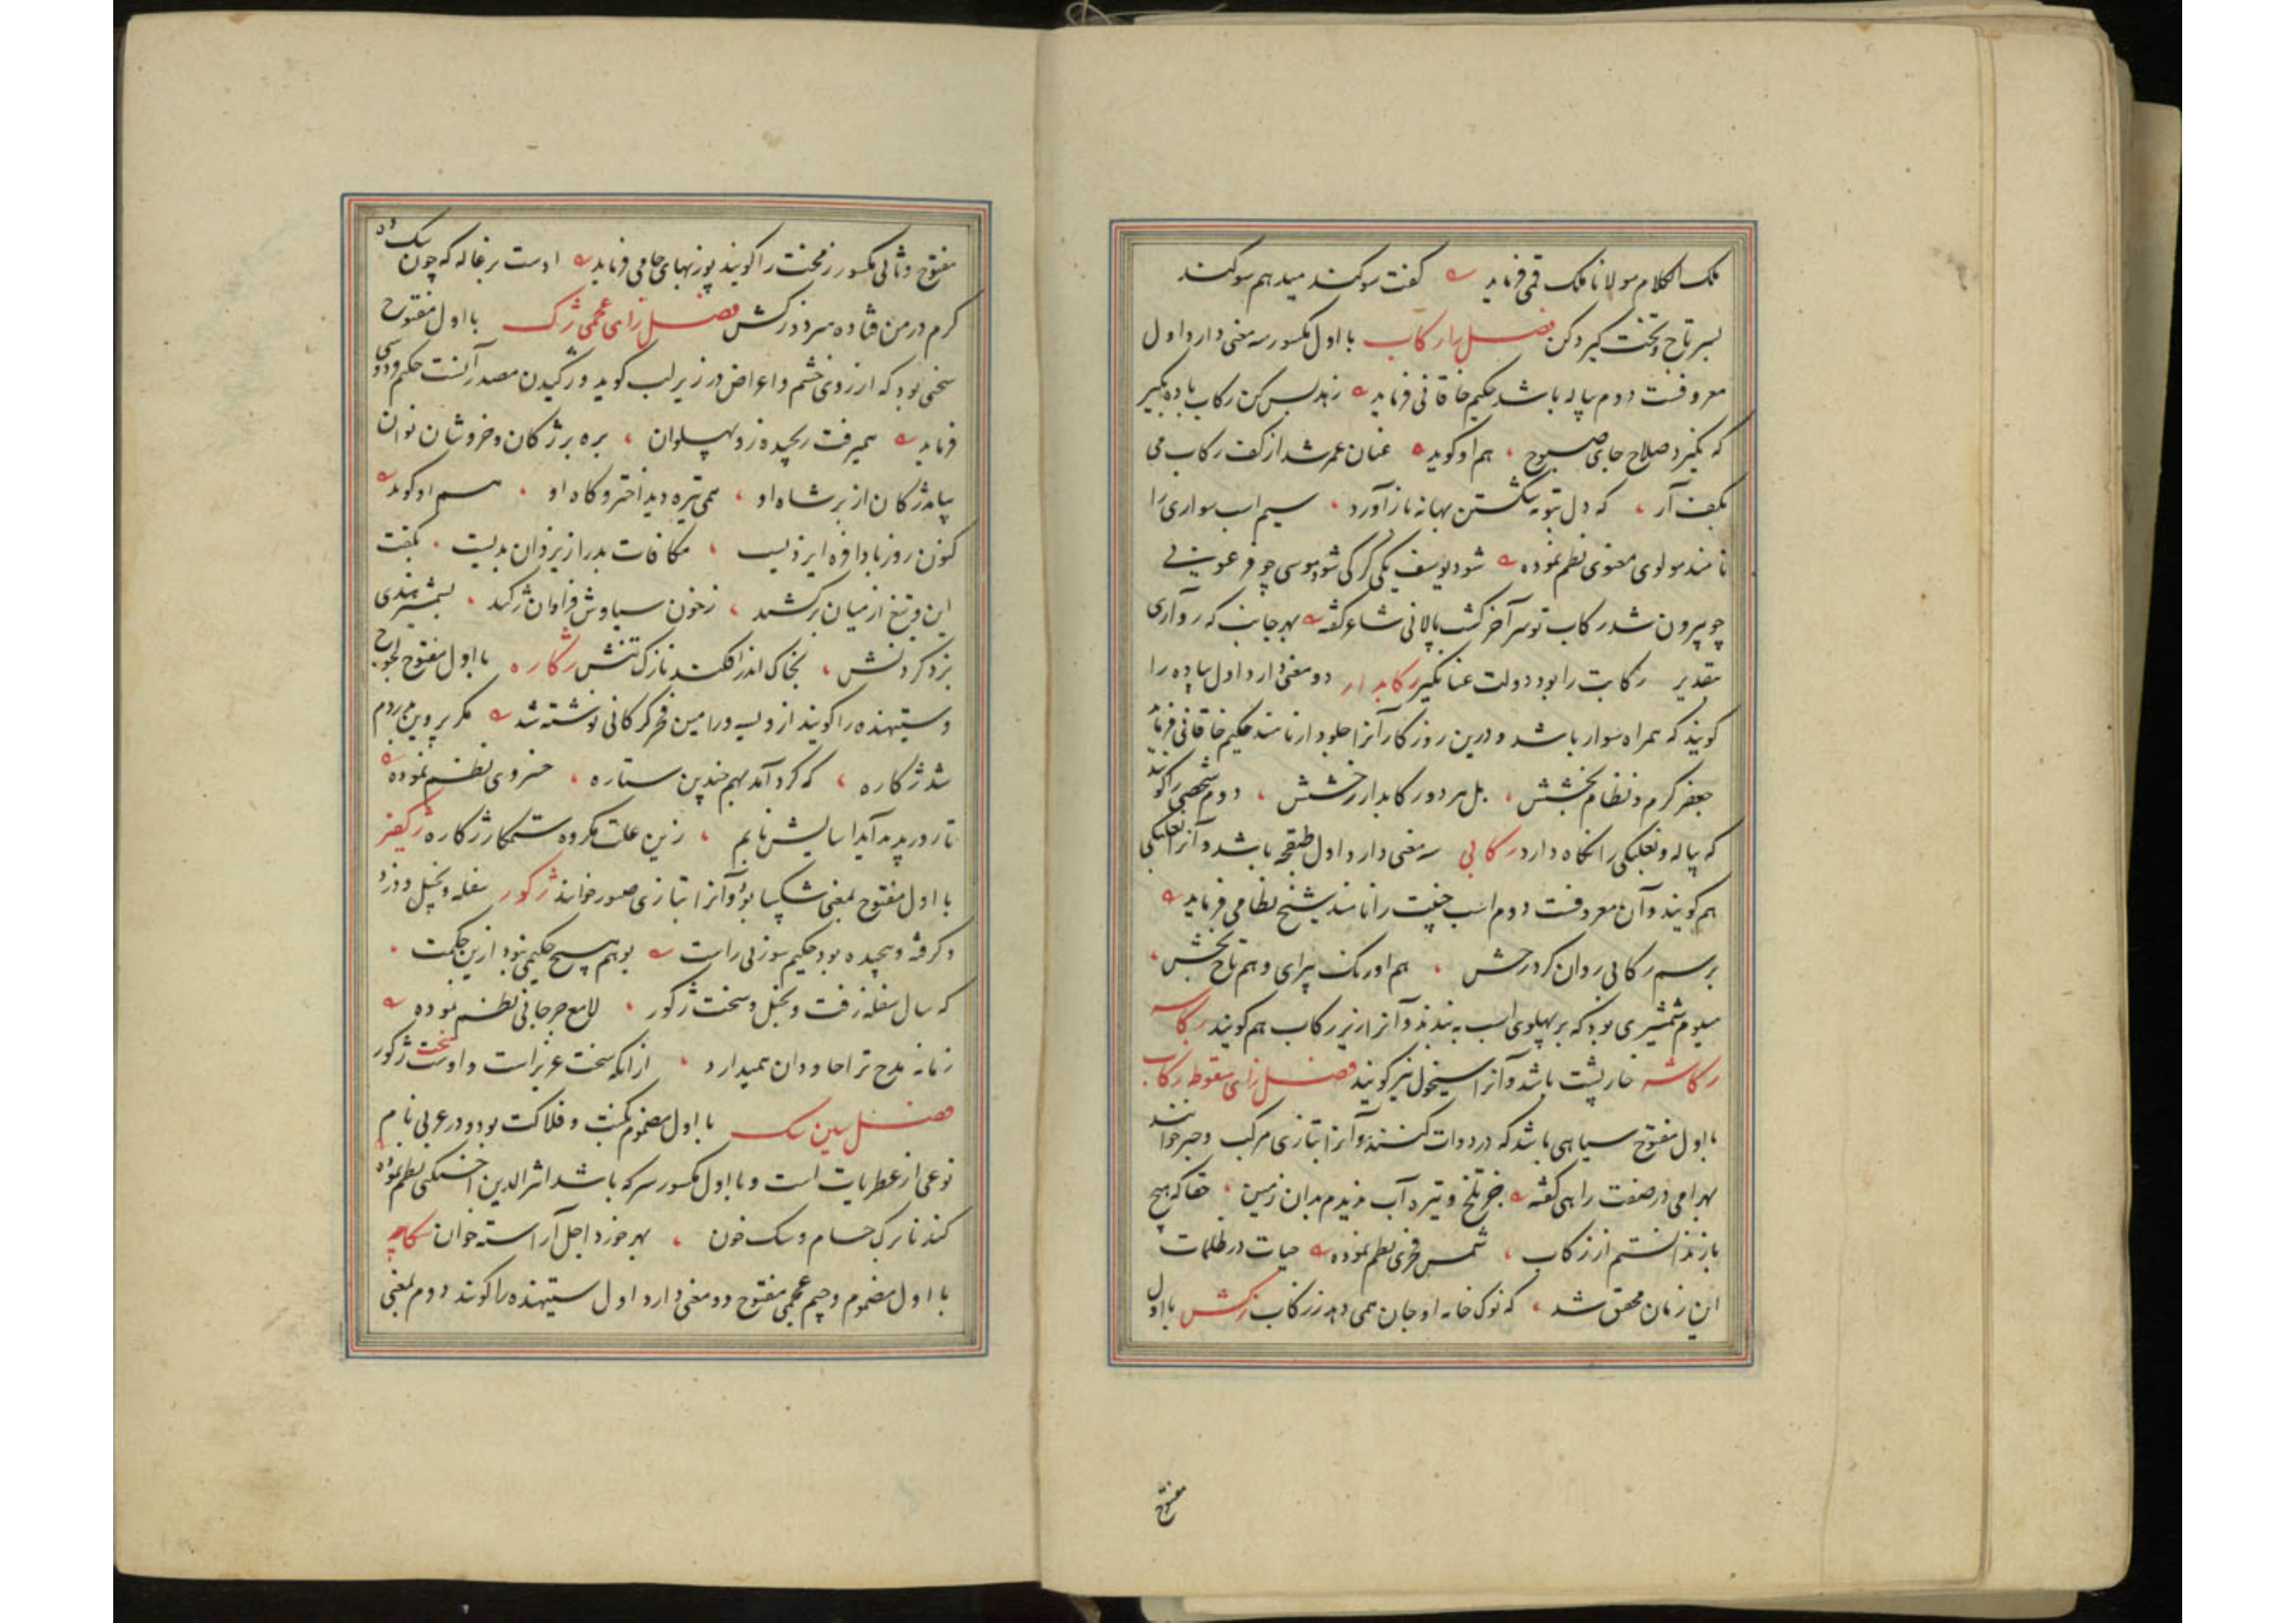 ملک الکلام مولانا ملک قمی فرماید گفت سوکند میدهم سوکند
بسر تاج و تخت کیر دکن فصل را رکاب با اول مکسور سه معنی دارد اول
معروفست دوم پیاله باشد حکیم خاقانی فرماید زهد بس کن رکاب باده بکیر
که نکیرد صلاح جای صبوح هم او کوید عنان عمر شد از کف رکاب می
بکف آر که دل بتوبه شکستن بهانه باز آورد سیم اسب سواری را
نامند مولوی معنوی نظم نموده شود یوسف یکی کرکی شود موسی چو فرعونی
چو بیرون شد رکاب تو سرآخر کشت پالانی شاعر کفته بهر جانب که رو آری
بتقدیر رکابت را بود دولت عنانکیر رکابدار دو معنی دارد اول پیاده را
کویند که همراه سوار باشد و درین روزکار آنرا جلودار نامند حکیم خاقانی فرماید
جعفر کرم و نظام بخشش بل هر دو رکابدار رخشش دوم شخصی را کویند
که پیاله و نعلبکی را نکاه دارد رکابی سه معنی دارد اول طبقچه باشد و آنرا نعلبکی
هم کویند و آن معروفست دوم اسب جنیبت را نامند شیخ نظامی فرماید
برسم رکابی روان کرد رخش هم اورنک پیرای و هم تاج بخش
سیوم شمشیری بود که بر پهلوی اسب به بندند و آنرا زیر رکاب هم کویند رکاسه
رکاشه خارپشت باشد و آنرا سیخول نیز کویند فصل زای منقوطه زکاب
با اول مفتوح سیاهی باشد که در دوات کنند و آنرا بتازی مرکب و حبر خوانند
بهرامی در صفت راهی کفته جز تلخ و تیره آب ندیدم بدان زمین حقا که هیچ
باز ندانستم از زکاب شمس فخری نظم نموده حیات در ظلمات
این زمان محقق شد که نوک خامه او جان همی دهد ز زکاب زکش با اول
مفتوح
مفتوح و ثانی مکسور زمخت را کویند پوربهای جامی فرماید اوست بزغاله که چون سک ده
کرم در من فتاده سرد و زکش فصل زای عجمی ژک با اول مفتوح
سخنی بود که از روی خشم و اعراض در زیر لب کوید و ژکیدن مصدر آنست حکیم فردوسی
فرماید همیرفت رنجیده زو پهلوان بره بر ژکان و خروشان نوان
بیامد ژکان از بر شاه او همی تیره دید اختر و کاه او هم او کوید
کنون روز بادافره ایزدیست مکافات بد را ز یزدان بدیست بکفت
این و تیغ از میان برکشید ز خون سیاوش فراوان ژکید بشمشیر هندی
بزد کردنش بخاک اندر افکند نازک تنش ژکاره با اول مفتوح لجوج
و ستیهنده را کویند از ویسه و رامین فخر کرکانی نوشته شد مکر پروین مردم
شد ژکاره که کرد آمد بهم چندین ستاره خسروی نظم نموده
تا رود پدید آید آسایش نایم زین علت مکروه ستمکار ژکاره ژکفر
با اول مفتوح بمعنی شکیبا بود و آنرا بتازی صبور خوانند ژکور سفله و بخیل و دزد
و کرفته و پیچیده بود حکیم سوزنی راست بوهم هیچ حکیمی نبود ازین حکمت
که سال سفله زفت و بخیل و سخت ژکور لامع جرجانی نظم نموده
زمانه مدح ترا جاودان همیدارد از آنکه سخت عزیز است و اوست سخت ژکور
فصل سین سک با اول مضموم نکبت و فلاکت بود و در عربی نام
نوعی از عطریات است و با اول مکسور سرکه باشد اثیرالدین اخسیکتی نظم نموده
کند نا برک حسام و سک خون بهر خورد اجل آراسته خوان سکاچه
با اول مضموم و جیم عجمی مفتوح دو معنی دارد اول ستیهنده را کویند دوم بمعنی